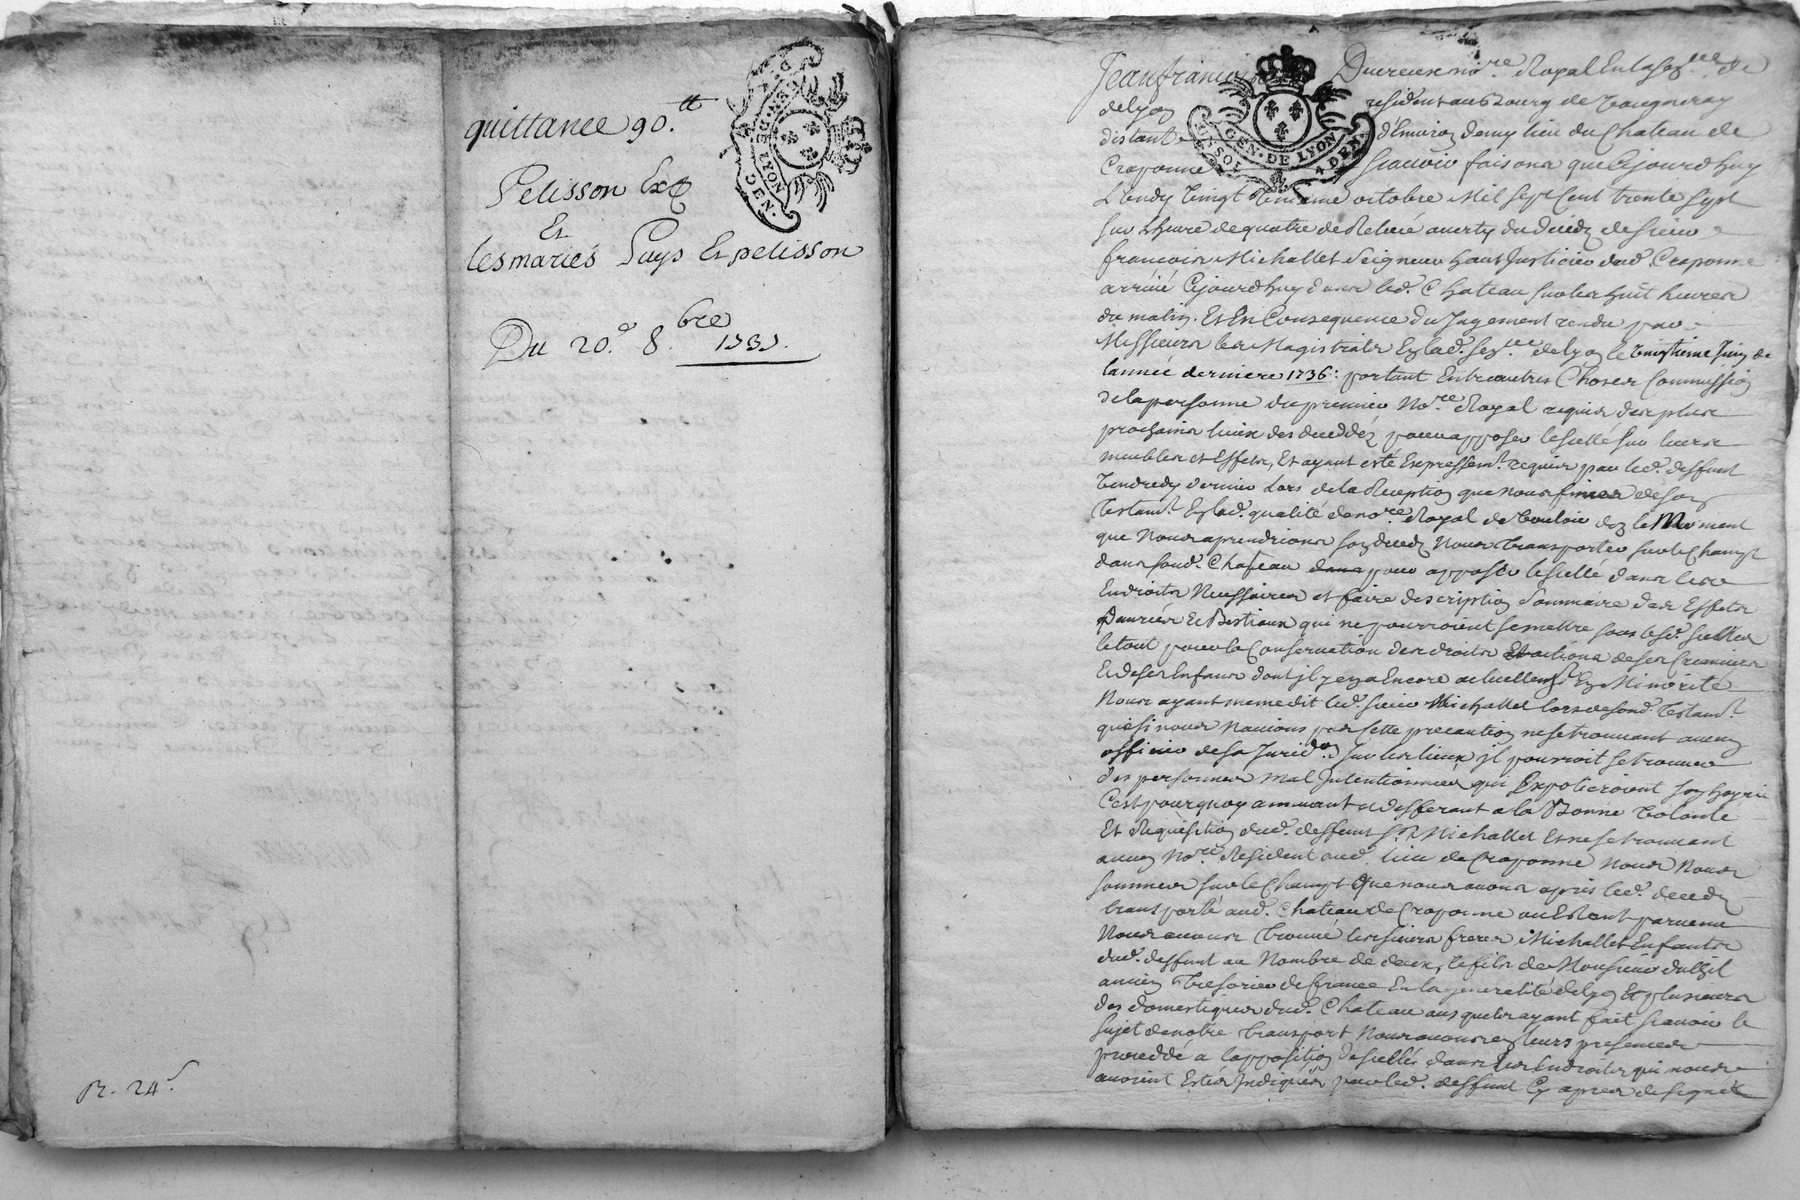 quittance 90.tt
Pelisson Ex
Et
les mariés Puys Et pelisson
Du 20.e 8.bre 1737.
R. 24s
GEN. DE LYON
GEN. DE LYON
Jean françois Ducreux no.re Royal En la Sez.ée de
de Lyon résident au Bourg de Vaugneray
distant d'Environ demy lieu du Chateau de
Craponne sçavoir faisons que Cejourdhuy
Lundy Vingt octobre Mil Sept Cent trente Sept
sur Lheure de quatre de Relevé averty du décéd de sieur
françois Michallet Seigneur haut Justicier dud. Craponne
arrivé Cejourdhuy dans led. Chateau sur les huit heures
du matin. Et En Consequence du Jugement rendu par
Messieurs les Magistrats En lad. Sez.ée de Lyon le Vingtieme Juin de
Lannée derniere 1736: portant Entreautres Choses Commission
de la personne du premier No.re Royal requis des plus
prochains lieux des deceddés pour apposer le scellé sur leurs
meubles et Effets, Et ayant esté Expressem.t requis par led. deffunt
Vendredy dernier Lors de la Reception que nous fimes de son
Testam.t En lad. qualité de no.re Royal de Vouloir dez le Moment
que Nous aprendrions son decedz Nous transporter sur le Champt
dans sond. Chateau dans pour apposer le scellé dans les
Endroits Necessaires et faire description Sommaire des Effets
Danrées Et Bestiaux qui ne pourroient se mettre sous lesd. scellés
le tout pour la Conservation des droits Et actions de ses Creanciers
Et de ses Enfans dont il y en a Encore actuellem.t En Minorité
Nous ayant meme dit led. sieur Michallet lors de sond. Testam.t
que si nous Navions pas Cette precaution ne se trouvant aucun
officier de sa Jurid.on sur les lieux il pourroit se trouver
des personnes mal Intentionnées qui Expolieroient son hoyrie
C'est pourquoy a deffferant a la Bonne Volonté
Et Requisition dud. deffunt S.r Michallet Et ne se trouvant
aucun No.re Resident aud. lieu de Craponne Nous Nous
sommes sur le Champt Que nous avons apris led. decedz
transporté aud. Chateau de Craponne ou Estant parvenu
Nous avons Trouvé les sieurs freres Michallet Enfants
dud. deffunt au Nombre de deux, le fils de Monsieur
ancien Tresorier de france En la generalité de Lyon Et plusieurs
des domestiques dud. Chateau ausquels ayant fait sçavoir le
Sujet de notre Transport Nous avons en leurs presences
procedé a lapposition de scellés dans les Endroits qui nous
avoient Estés Indiqués par led. deffunt Cy apres designés